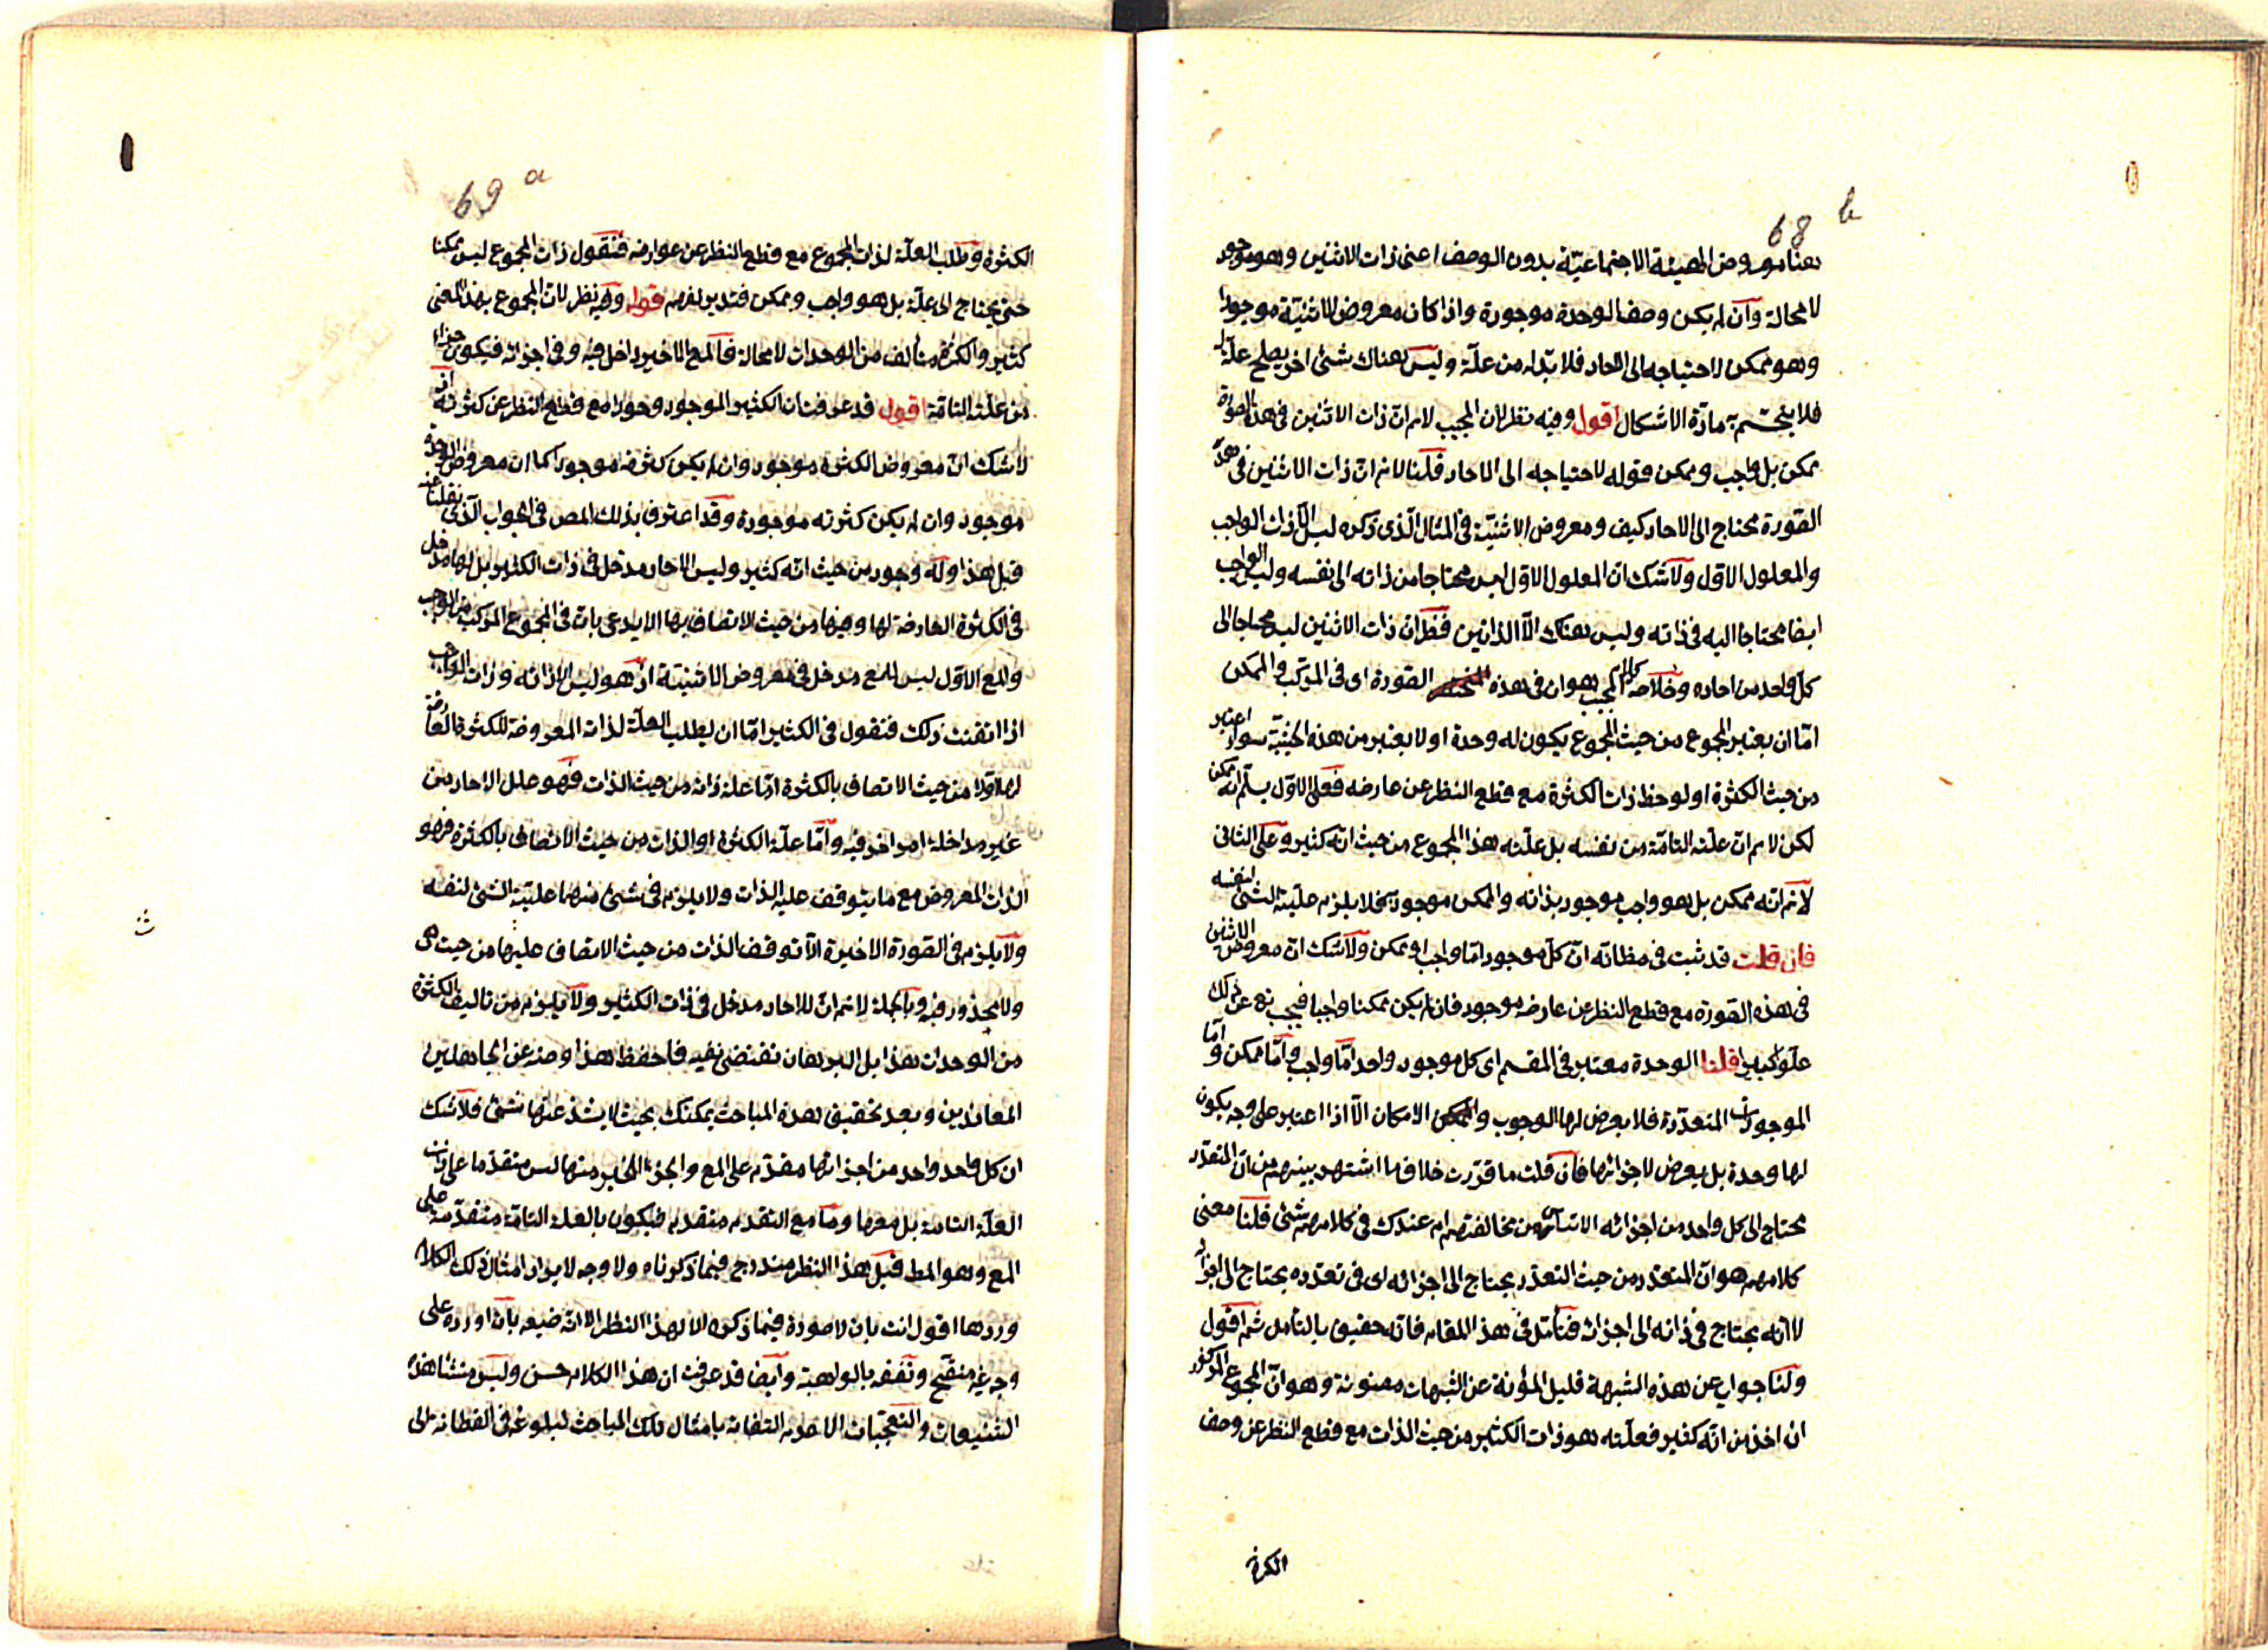 68 b
هنا معروض الهيئة الاجتماعيّة بدون الوصف اعنى ذات الاثنين وهو موجود
لا محالة وان لم يكن وصف الوحدة موجودة واذا كان معروض الاثنيّة موجودا
وهو ممكن لاحتياجه الى الاحاد فلا بدّ له من علّة وليس هناك شئ اخر يصلح علّة له
فلا ينحسم مادّة الاشكال اقول وفيه نظر لان المجيب لا يسلم ان ذات الاثنين فى هذه الصورة
ممكن بل واجب وممكن قوله لاحتياجه الى الاحاد قلنا لا نم انّ ذات الاثنين فى هذه
الصّورة محتاج الى الاحاد كيف ومعروض الاثنيّة فى المثال الّذى ذكره ليس الّا ذات الواجب
والمعلول الاوّل ولا شك انّ المعلول الاول ليس محتاجا من ذاته الى نفسه وليس الواجب
ايضا محتاجا اليه فى ذاته وليس هناك الّا الذاتين فظهر ان ذات الاثنين ليس محتاجا الى
كلّ واحد من احاده وخلاصة كلام المجيب هو ان فى هذه الصّورة اى فى المركّب من الواجب والممكن
امّا ان يعتبر المجموع من حيث المجموع يكون له وحدة او لا يعتبر من هذه الحيثيّة سواء اعتبر
من حيث الكثرة او لوحظ ذات الكثرة مع قطع النظر عن عارضه فعلى الاوّل يسلّم انه ممكن
لكن لا نم انّ علّته التامّة من نفسه بل علّته هذا المجموع من حيث انّه كثير وعلى الثانى
لا نم انّه ممكن بل هو واجب موجود بذاته والممكن موجود به فلا يلزم علّية الشئ لنفسه
فان قلت قد ثبت فى مظانّه انّ كلّ موجود امّا واجب او ممكن ولا شك انّ معروض الاثنين
فى هذه الصّورة مع قطع النظر عن عارضه موجود فان لم يكن ممكنا واجبا فيجب تع عن ذلك
علوّا كبيرا قلنا الوحدة معتبر فى المقسم اى كل موجود واحد امّا واجب وامّا ممكن وامّا
الموجودات المتعدّدة فلا يعرض لها الوجوب والامكان الّا اذا اعتبر على وجه يكون
لها وحدة بل يعرض لاجزائها فان قلت ما قرّرت خلاف ما اشتهر بينهم من انّ المتعدّد
محتاج الى كل واحد من اجزائه من مخالفتهم ام عندك فى كلامهم شئ قلنا معنى
كلامهم هو انّ المتعدّد من حيث التعدّد يحتاج الى اجزائه اى فى تعدّده يحتاج الى اجزائه
لا انّه يحتاج فى ذاته الى اجزائه فتأمّل فى هذا المقام فانّه حقيق بالتأمل ثم اقول
ولنا جواب عن هذه الشبهة قليل المؤنة عن الشبهات مصونة وهو انّ المجموع المذكور
ان اخذ من انّه كثير فعلّته هو ذات الكثير من حيث الذات مع قطع النظر عن وصف
الكثرة
69 a
الكثرة وطلب العلّة لذات المجموع مع قطع النظر عن عوارضه فنقول ذات المجموع ليس ممكنا
حتى يحتاج الى علّة بل هو واجب وممكن فتدبر تفهم قوله وفيه نظر لان المجموع بهذا المعنى
كثير والكثرة متألف من الوحدات لا محالة فالمع الاخير داخل فيه وفى اجزائه فيكون جزءا
من علّته التامّة اقول قد عرفت ان الكثير الموجود وجودا مع قطع النظر عن كثرته اذ
لا شك انّ معروض الكثرة موجود وان لم يكن كثرته موجودا كما ان معروض الوحدة
موجود وان لم يكن كثرته موجودة وقد اعترف بذلك المص فى الجواب الّذى نقلنا عنه
قبل هذا وله وجود من حيث انّه كثير وليس الاحاد مدخل فى ذات الكثير بل لها مدخل
فى الكثرة العارضة لها وفيها من حيث الاتصاف بها الا يدعى بان فى المجموع المركب من الواجب
والمع الاوّل ليس للمع مدخل فى معروض الاثنيّة اذ هو ليس الا ذاته وذات الواجب
اذا اتقنت ذلك فنقول فى الكثير امّا ان يطلب العلّة لذاته المعروضة للكثرة العارضة
لها اوّلا من حيث الاتصاف بالكثرة امّا علة ذاته من حيث الذات فهو علل الاحاد من
غير مداخلة امر اخر فيه وامّا علّة الكثرة او الذات من حيث الاتصاف بالكثرة فهو
الذات المعروض مع ما يتوقف عليه الذات ولا يلزم فى شئ منهما علّية الشئ لنفسه
ولا يلزم فى الصّورة الاخيرة الّا توقف الذات من حيث الاتصاف عليها من حيث هى
ولا محذور فيه وبالجملة لا نم انّ للاحاد مدخل فى ذات الكثير ولا يلزم من تاليف الكثرة
من الوحدات هذا بل البرهان تقتضى نفيه فاحفظ هذا وصنه عن الجاهلين
المعاندين وبعد تحقيق هذه المباحث يمكنك بحيث لا يشذ عنها شئ فلا شك
ان كل واحد واحد من اجزائها مقدّم على المع والجزء الاخير منها ليس متقدّما على ذات
العلّة التامة بل معها وما مع التقدم متقدم فيكون بالعلة التامّة متقدّمة على
المع وهو المط قيل هذا النظر مندرج فيما ذكرناه ولا وجه لايراد امثال ذلك الكلام
وردها اقول انت بان لا صورة فيما ذكره الا لهذا النظر الا انّه ضيعه بان اورده على
وجه غير منقّح وتفقه بالواهية وايضا قد عرفت ان هذا الكلام حسن وليس منشأ هذه
التشنيعات والتعجّبات الا عدم التفاته بامثال تلك المباحث لبلوغه فى الفطانة الى